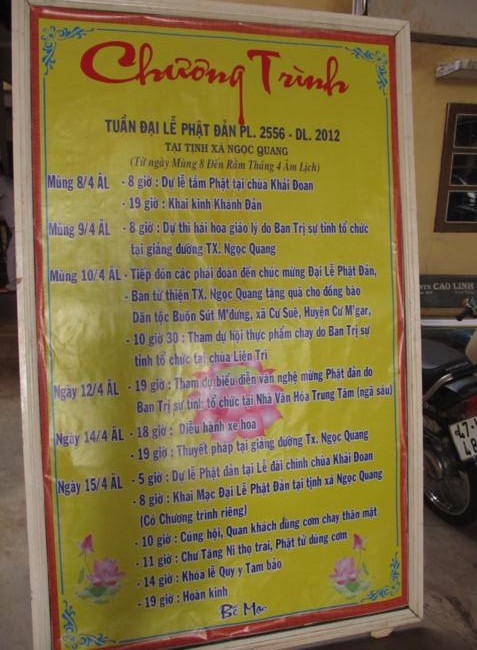 Chương Trình
TUẦN ĐẠI LỄ PHẬT ĐẢN PL. 2556 - DL. 2012
TẠI TỊNH XÁ NGỌC QUANG
(Từ ngày Mùng 8 Đến Rằm Tháng 4 Âm Lịch)
Mùng 8/4 ÂL - 8 giờ : Dự lễ tắm Phật tại chùa Khải Đoan
- 19 giờ : Khai kinh Khánh Đản
Mùng 9/4 ÂL - 8 giờ : Dự thi hái hoa giáo lý do Ban Trị sự tỉnh tổ chức
tại giảng đường TX. Ngọc Quang
Mùng 10/4 ÂL - Tiếp đón các phái đoàn đến chúc mừng Đại Lễ Phật Đản,
- Ban từ thiện TX. Ngọc Quang tặng quà cho đồng bào
Dân tộc Buôn Sút M'đưng, xã Cư Suê, Huyện Cư M'gar,
- 10 giờ 30 : Tham dự hội thực phẩm chay do Ban Trị sự
tỉnh tổ chức tại chùa Liên Trì
Ngày 12/4 ÂL - 19 giờ : Tham dự biểu diễn văn nghệ mừng Phật đản do
Ban Trị sự tỉnh tổ chức tại Nhà Văn Hóa Trung Tâm (ngã sáu)
Ngày 14/4 ÂL - 18 giờ : Diễu hành xe hoa
- 19 giờ : Thuyết pháp tại giảng đường Tx. Ngọc Quang
Ngày 15/4 ÂL - 5 giờ : Dự lễ Phật đản tại Lễ đài chính chùa Khải Đoan
- 8 giờ : Khai Mạc Đại Lễ Phật Đản tại tịnh xá Ngọc Quang
(Có Chương trình riêng)
- 10 giờ : Cúng hội, Quan khách dùng cơm chay thân mật
- 11 giờ : Chư Tăng Ni thọ trai, Phật tử dùng cơm
- 14 giờ : Khóa lễ Quy y Tam bảo
- 19 giờ : Hoàn kinh
Bế Mạc
CAO LINH